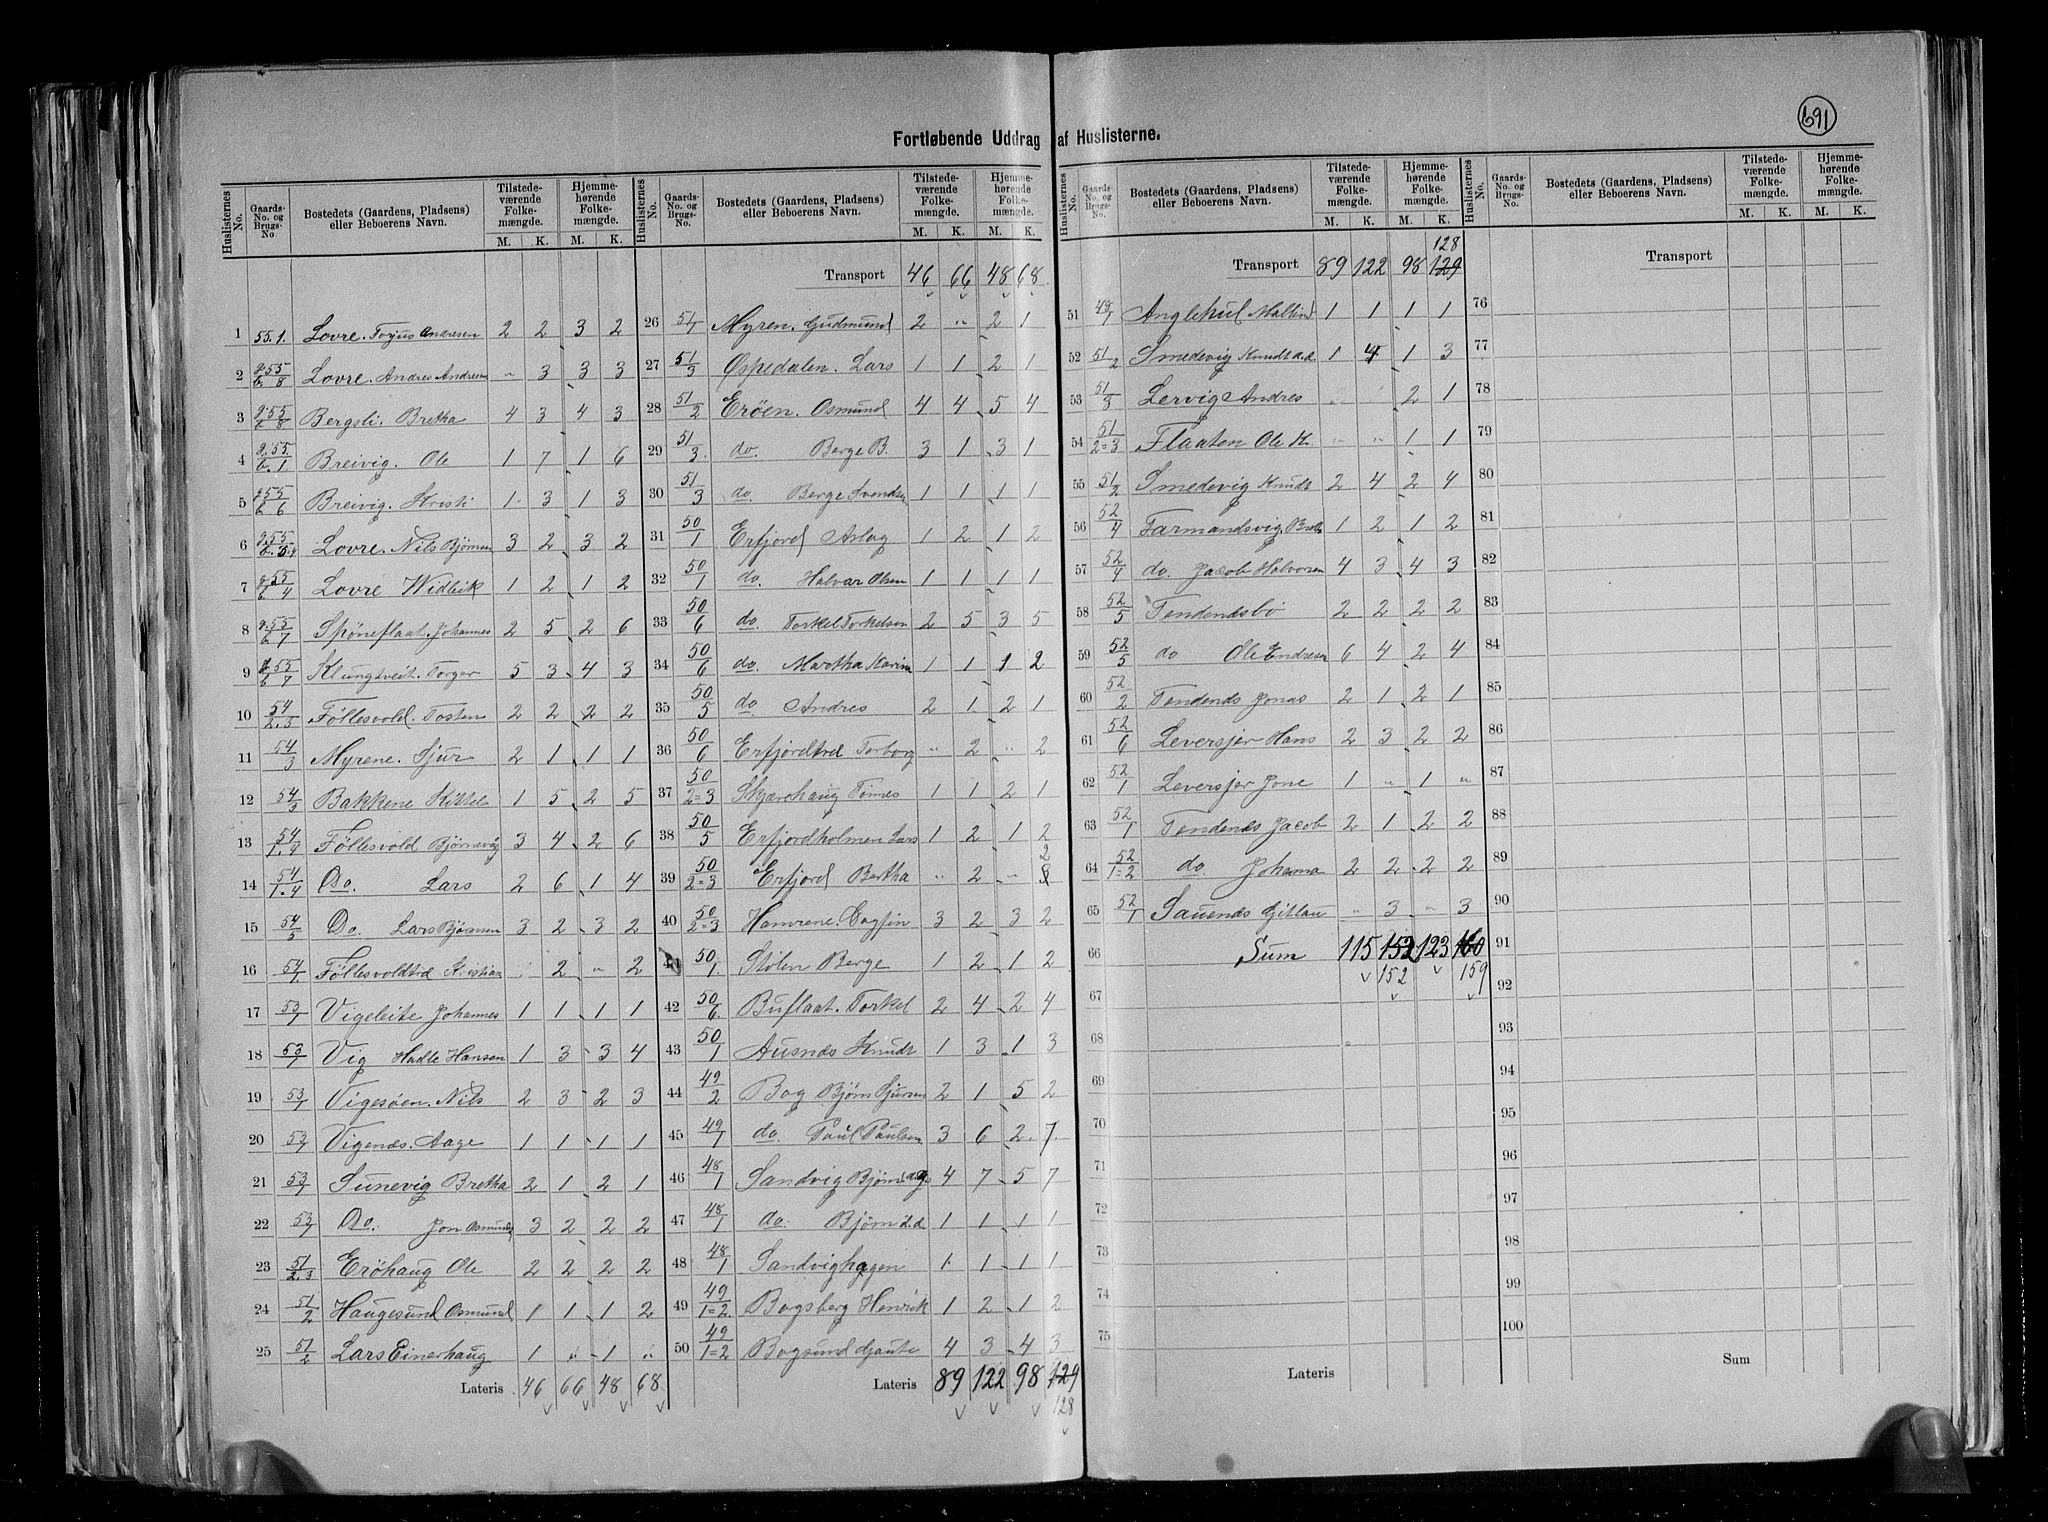 691
Fortløbende Uddrag af Huslisterne.
Huslisternes No. Gaards-No. og Brugs-No. Bostedets (Gaardens, Pladsens) eller Beboerens Navn. Tilstedeværende Folkemængde. M. K. Hjemmehørende Folkemængde. M. K.
1 55.1. Lovre. Torjus Andresen 2 2 3 2
2 55/8 Lovre. Andres Andresen „ 3 3 3
3 55/8 Bergsli. Bretha 4 3 4 3
4 55/1 Breivig. Ole 1 7 1 6
5 55/6 Breivig. Kristi 1 3 1 3
6 55 Lovre. Nils Bjørnsen 3 2 3 2
7 55/4 Lovre Widbik 1 2 1 2
8 55/7 Spøneflaat. Johannes 2 5 2 6
9 55/7 Klungtveit. Torger 5 3 4 3
10 54/2.3 Føllesvold. Tosten 2 2 2 2
11 54/3 Myrene. Sjur 2 1 1 1
12 54/3 Bakkene Kittel 1 5 2 5
13 54/1.4 Føllesvold Bjørnevig 3 4 2 6
14 54/1.4 Do. Lars 2 6 1 4
15 54/5 Do. Lars Bjørnsen 3 2 3 2
16 54/1. Føllesvoldtræ Kristian 2 „ 2
17 53/1 Vigeleite Johannes 1 1 1 1
18 53/1 Vig Hadle Hansen 1 3 3 4
19 53/1 Vigesøen. Nils 2 3 2 3
20 53/1 Vigenæs. Aage 1 1 1 1
21 53/1 Sunevig Bretha 2 1 2 1
22 53/1 Do. Jon Osmunds 3 2 2 2
23 51/2.3 Erøhaug Ole 2 2 2 2
24 51/2 Haugesund Osmund 1 1 1 2
25 51/2 Lars Einerhaug 1 „ 1 „
Lateris 46 66 48 68
Huslisternes No. Gaards-No. og Brugs-No. Bostedets (Gaardens, Pladsens) eller Beboerens Navn. Tilstedeværende Folkemængde. M. K. Hjemmehørende Folkemængde. M. K.
Transport 46 66 48 68
26 51/1 Myren. Gudmund 2 „ 2 1
27 51/3 Øspedalen. Lars 1 1 2 1
28 51/2 Erøen. Osmund 4 4 5 4
29 51/3. do. Berge B. 3 1 3 1
30 51/3 do. Berge Svendsen 1 1 1 1
31 50/1 Erfjord Aslag 1 2 1 2
32 50/1 do. Halvar Olsen 1 1 1 1
33 50/6 do. Torkel Torkelsen 2 5 3 5
34 50/6 do. Martha Karina 1 1 1 2
35 50/5 do Andres 2 1 2 1
36 50/6 Erfjordtræ Torborg „ 2 „ 2
37 50/2=3 Skjærehaug Tønnes 1 1 2 1
38 50/5 Erfjordholmen Lars 1 2 1 2
39 50/2=3 Erfjord Bertha „ 2 „ 3 2
40 50/2=3 Hamrene. Dagfin 3 2 3 2
41 50/1. Stølen Berge 1 2 1 2
42 50/6. Buflaat. Torkel 2 4 2 4
43 50/1 Ausnæs Knudt 1 3 1 3
44 49/2 Bog Bjørn Sjursen 2 1 5 2
45 49/1 do. Paul Paulsen 3 6 2 7
46 48/1 Sandvig Bjørn d.g. 4 7 5 7
47 48/1 do. Bjørn d.d. 1 1 1 1
48 48/1 Sandvighagen 1 1 1 1
49 49/1=2. Bogsberg Henrik 1 2 1 2
50 49/1=2 Bogsund Gaute 4 3 4 3
Lateris 89 122 98 129
128
Huslisternes No. Gaards-No. og Brugs-No. Bostedets (Gaardens, Pladsens) eller Beboerens Navn. Tilstedeværende Folkemængde. M. K. Hjemmehørende Folkemængde. M. K.
128
Transport 89 122 98 129
51 49/1 Anglehul Malline 1 1 1 1
52 51/2 Smedevig Knudt d.d. 1 4 1 3
53 51/3 Lervig Andres 2 1
54 51/2=3 Flaaten Ole K. „ „ 1 1
55 51/2 Smedevig Knudt 2 4 2 4
56 52/4 Farmandsvig. Bretha 1 2 1 2
57 52/4 do. Jacob Halvorsen 4 3 4 3
58 52/5 Tendendsbø 2 2 2 2
59 52/5 do Ole Endresen 6 4 2 4
60 52/2 Tendends Jonas 2 1 2 1
61 52/6 Leversjør Hans 2 3 2 2
62 52/1 Leversjør Jone 1 „ 1 „
63 52/1 Tendends Jacob 2 1 2 2
64 52/1=2 do Johanna 2 2 2 2
65 52/1 Sauends Gitlau „ 3 „ 3
66 Sum 115 152 123 160
152 159
67
68
69
70
71
72
73
74
75
Lateris
Huslisternes No. Gaards-No. og Brugs-No. Bostedets (Gaardens, Pladsens) eller Beboerens Navn. Tilstedeværende Folkemængde. M. K. Hjemmehørende Folkemængde. M. K.
Transport
76
77
78
79
80
81
82
83
84
85
86
87
88
89
90
91
92
93
94
95
96
97
98
99
100
Sum